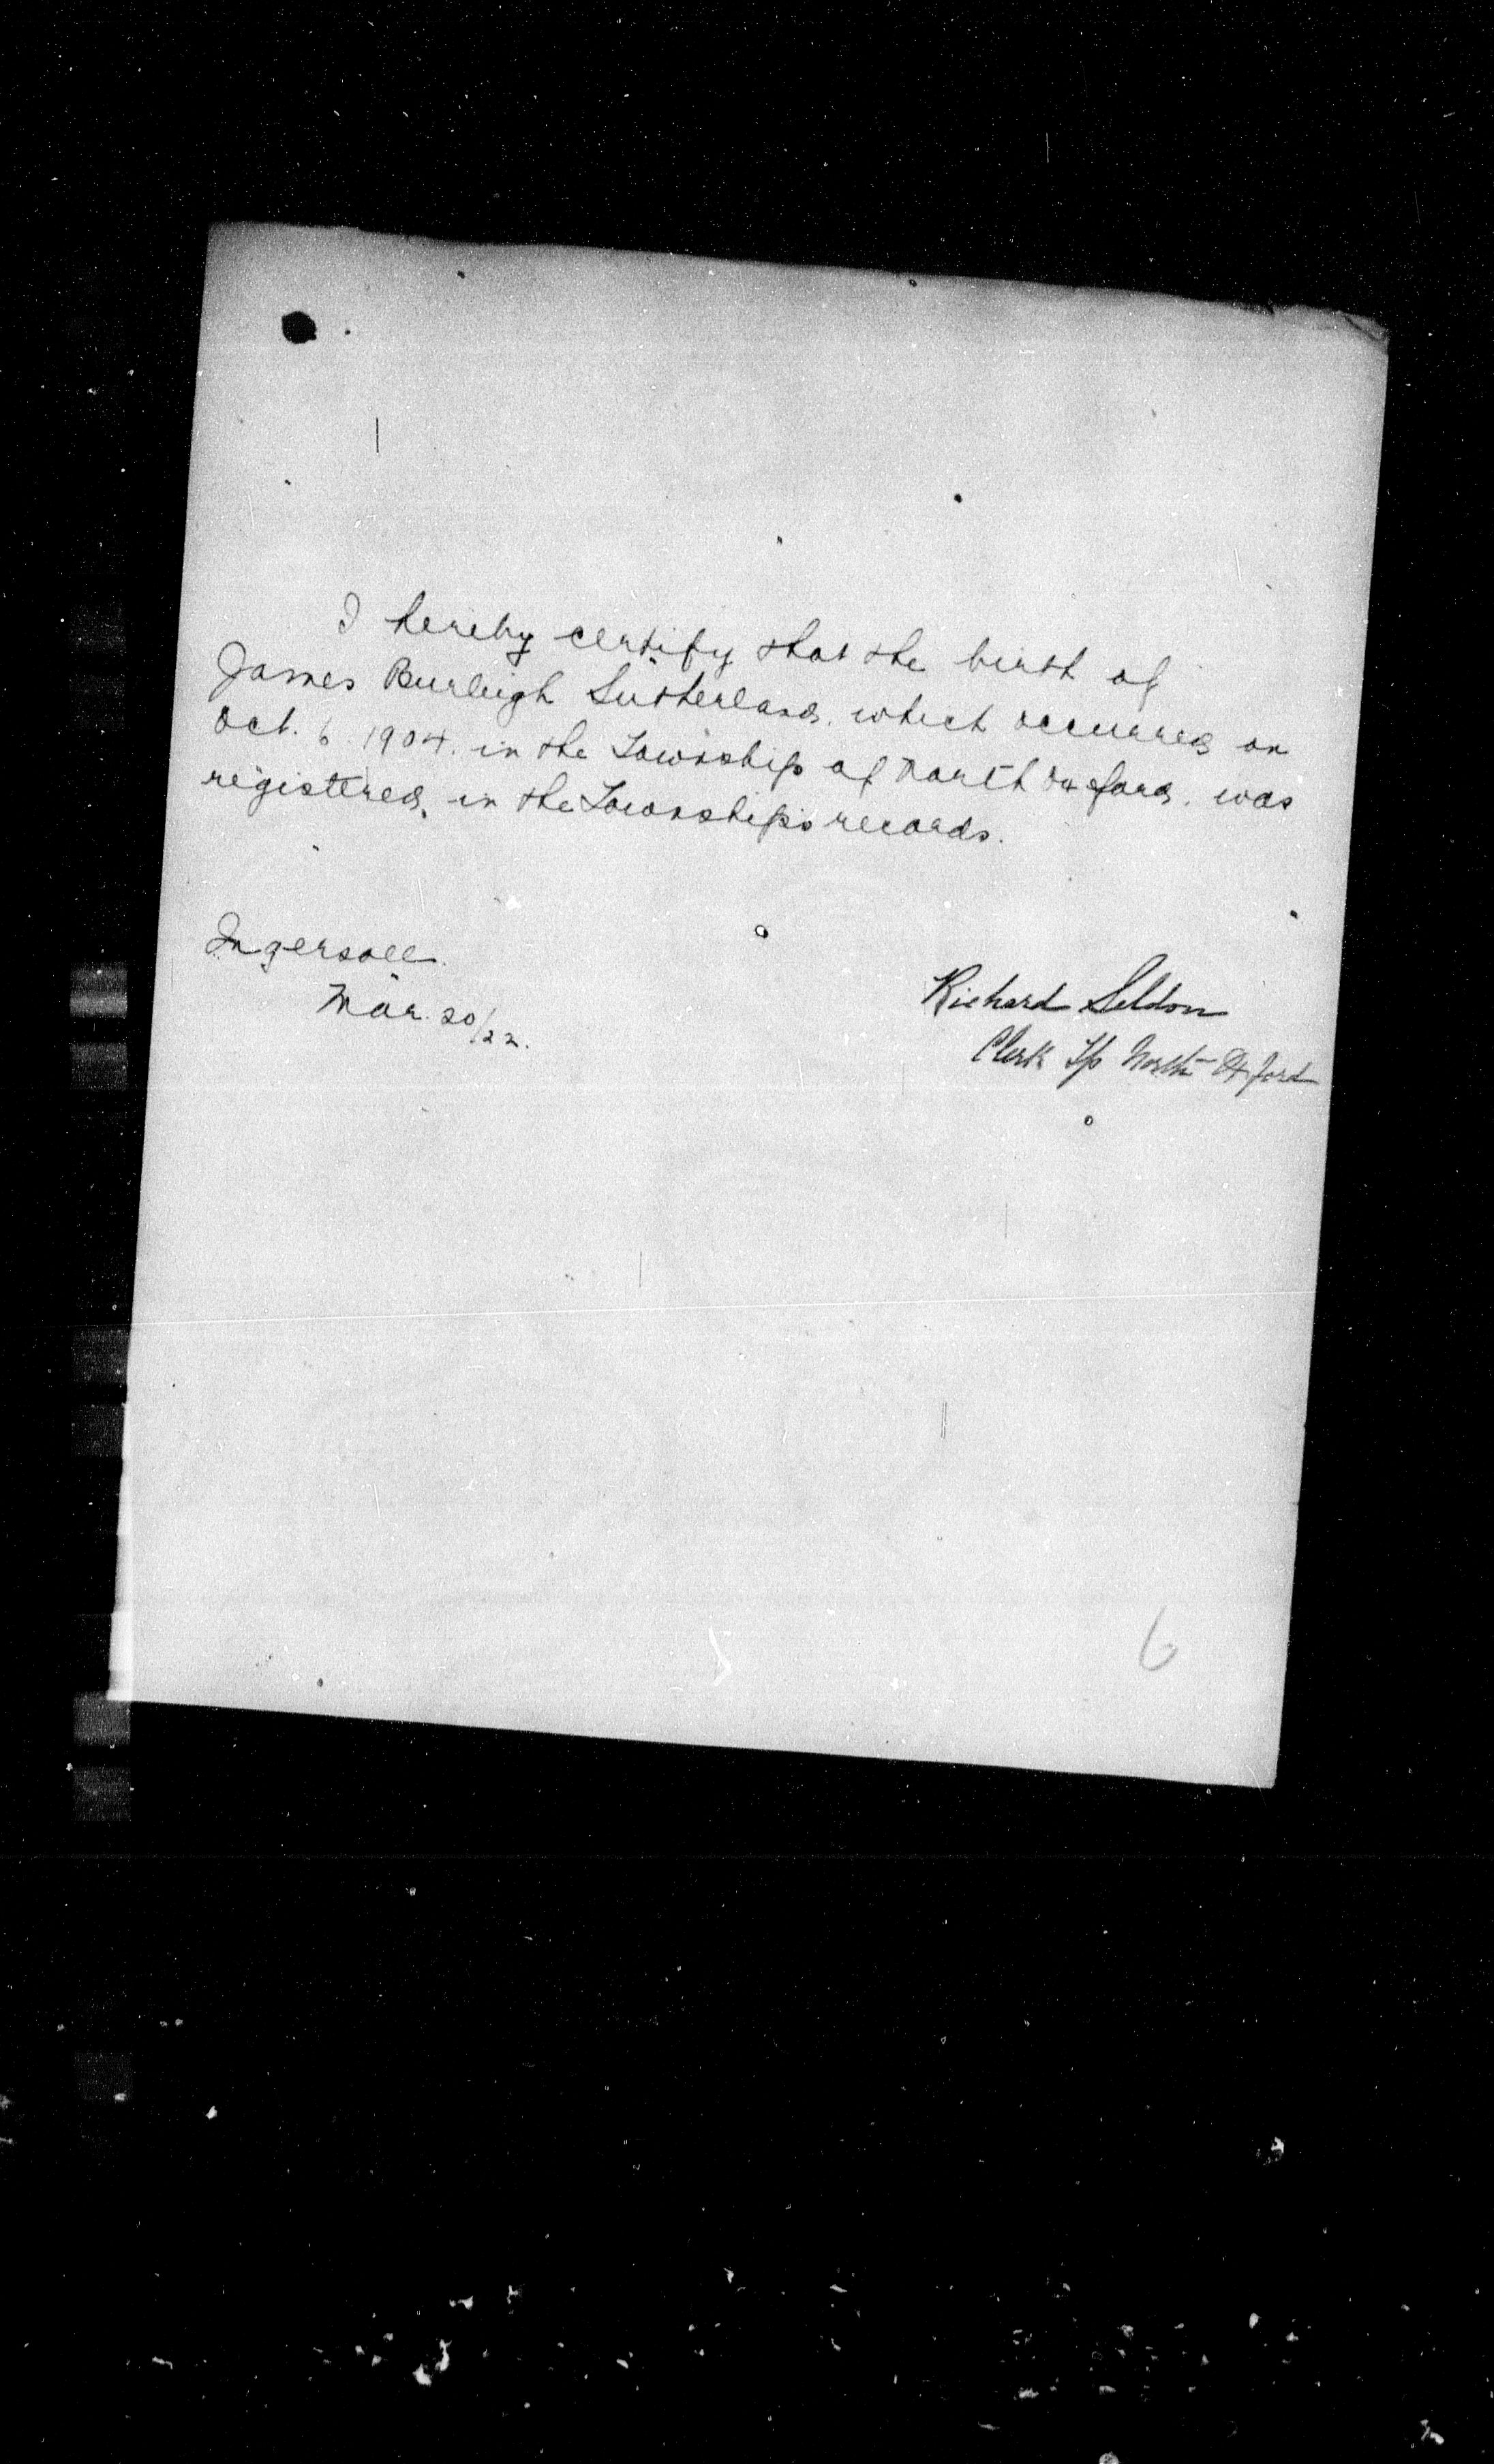 I hereby certify that the birth of
James Burleigh Sutherland. which occurred on
Oct. 6. 1904. in the Township of North Oxford. was
registered, in the Township's records.
Ingersoll.
Mar. 20/22.
Richard Seldon
Clerk Tp North Oxford
6